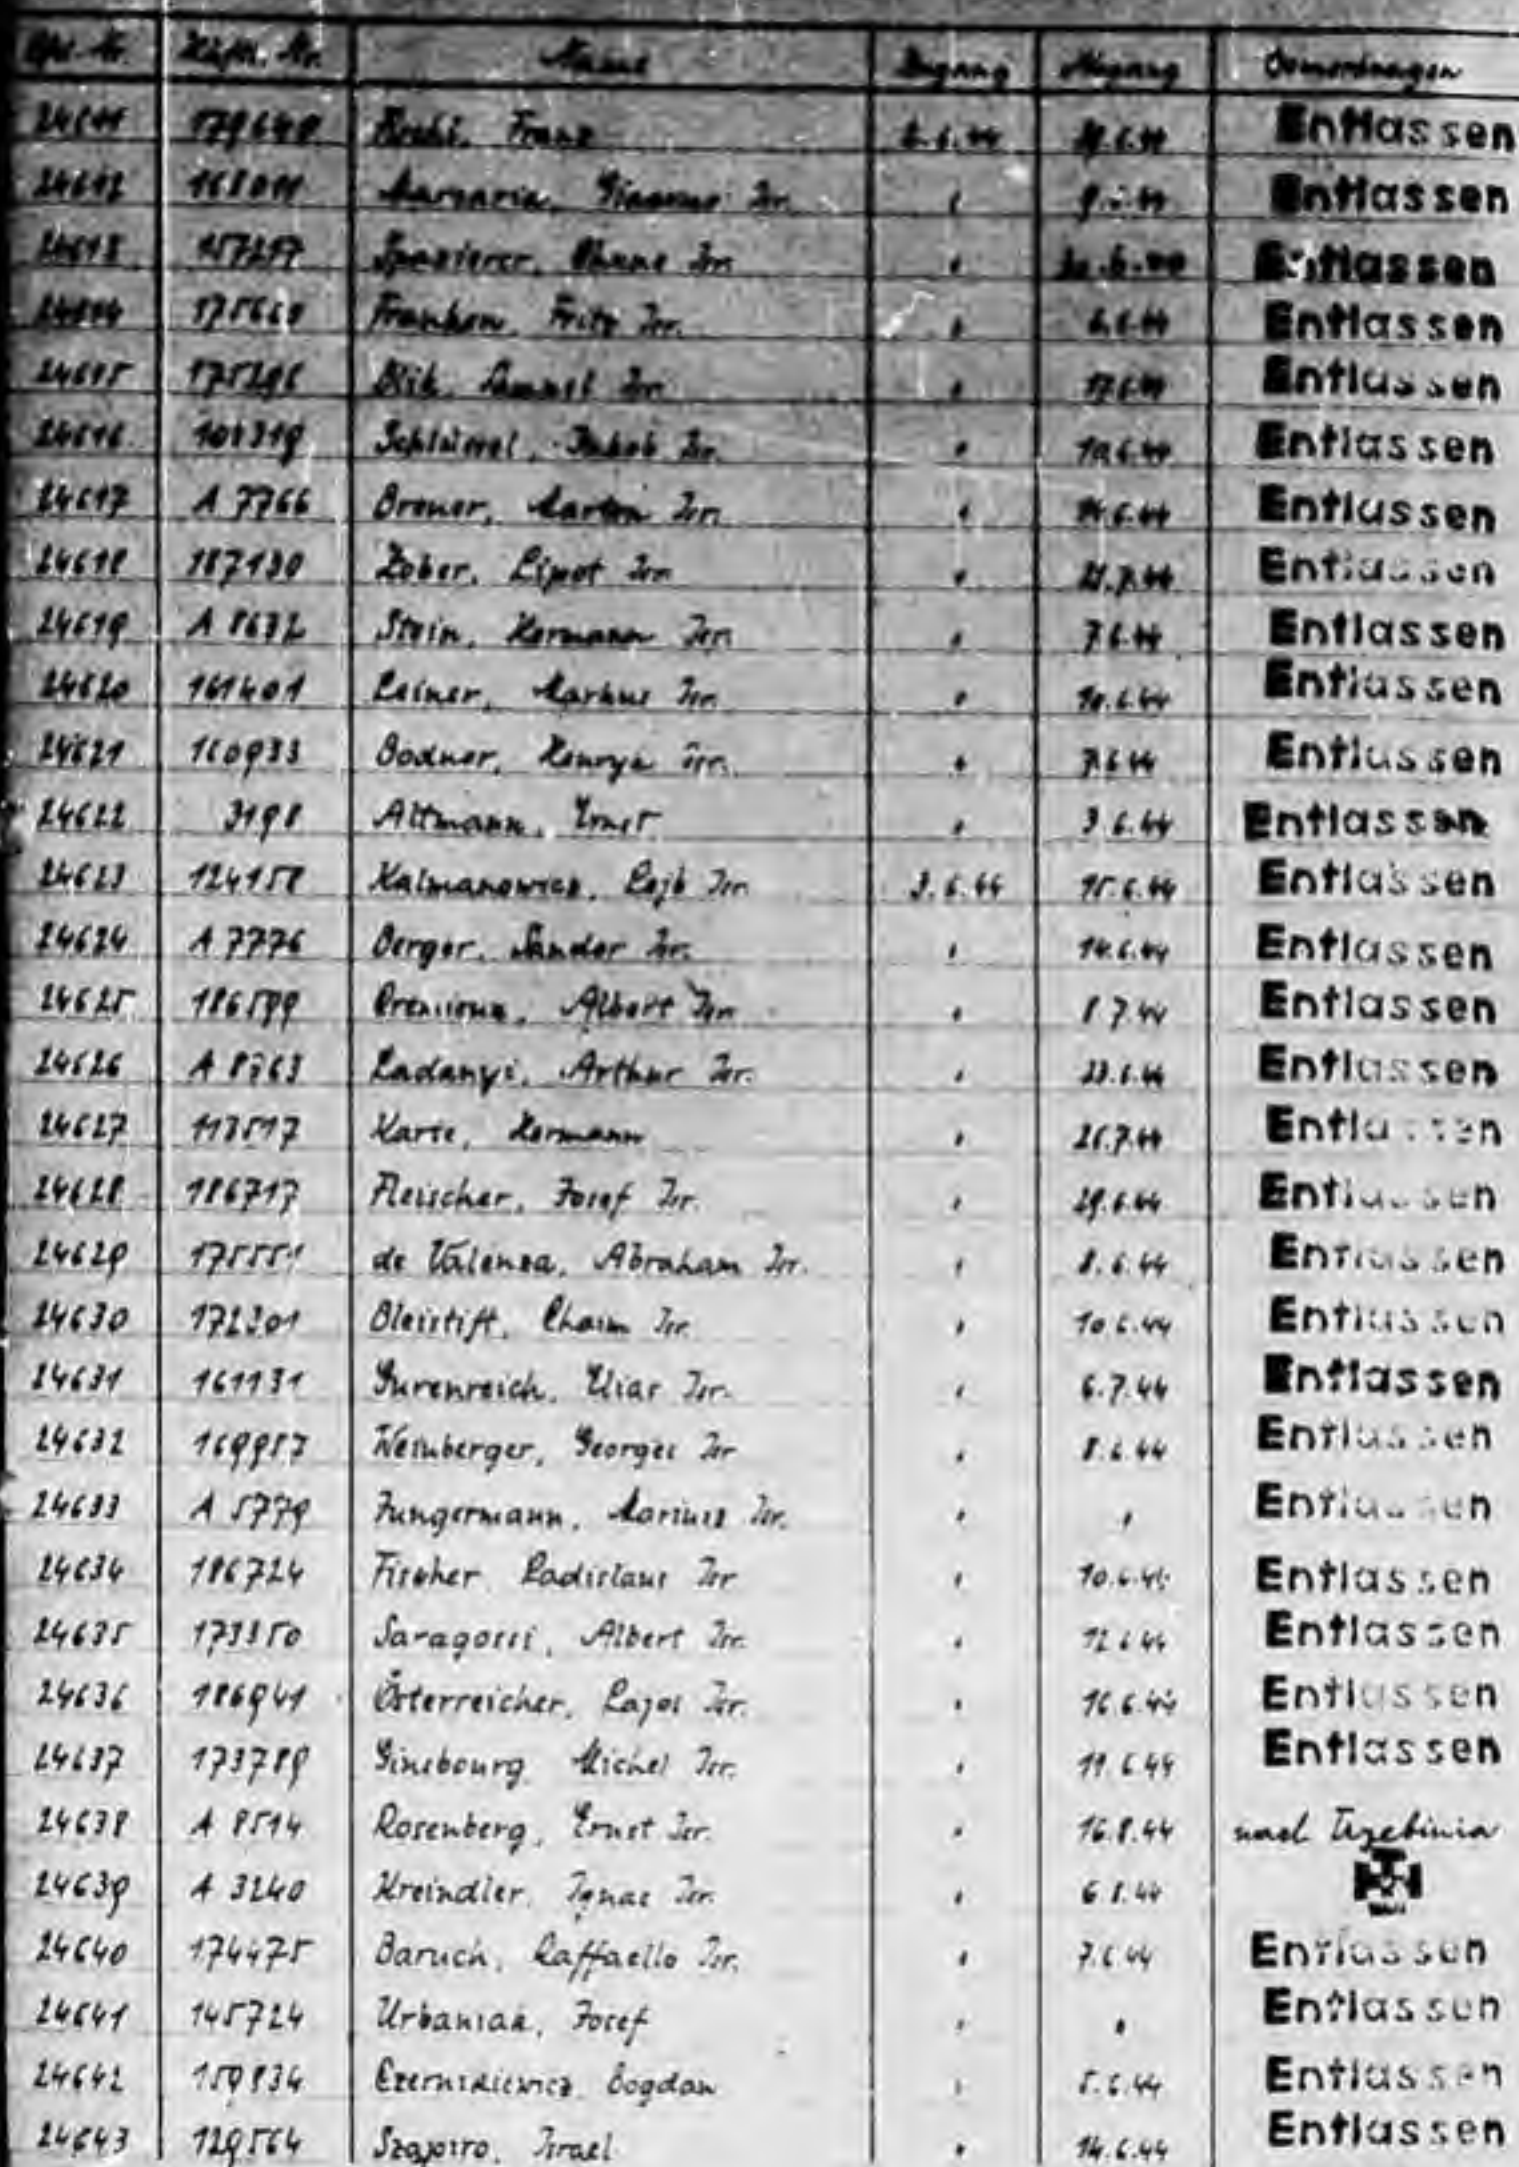 Häftl. Nr. Name Zugang Abgang Bemerkungen
24611 Franz 2.6.44 Entlassen
24612 168011 Isr. " Entlassen
24613 157217 Spazierer, Isr. " Entlassen
24614 Franken, Fritz Isr. " 6.6.44 Entlassen
24615 Blik, Samuel Isr. " 17.6.44 Entlassen
24616 Jakob Isr. " 10.6.44 Entlassen
24617 A 7766 Breuer, Marton Isr. " 14.6.44 Entlassen
24618 187130 Zober, Lipot Isr. " Entlassen
24619 A 8632 Stein, Hermann Isr. " 7.6.44 Entlassen
24620 161401 Leiner, Markus Isr. " 10.6.44 Entlassen
24621 160933 Bodner, Henryk Isr. " 7.6.44 Entlassen
24622 3198 Altmann, Ernst " 3.6.44 Entlassen
24623 124158 Kalmanowicz, Lejb Isr. 3.6.44 15.6.44 Entlassen
24624 A 7776 Berger, Sandor Isr. " 14.6.44 Entlassen
24625 186599 Albert Isr. " 8.7.44 Entlassen
24626 A 8763 Ladanyi, Arthur Isr. " 23.6.44 Entlassen
24627 113517 Hermann " 26.7.44 Entlassen
24628 186717 Fleischer, Josef Isr. " 29.6.44 Entlassen
24629 175551 de Valensa, Abraham Isr. " 8.6.44 Entlassen
24630 172301 Bleistift, Chaim Isr. " 10.6.44 Entlassen
24631 161131 Gurenreich, Elias Isr. " 6.7.44 Entlassen
24632 169957 Weinberger, Georges Isr. " 8.6.44 Entlassen
24633 A 5779 Jungermann, Marius Isr. " " Entlassen
24634 186724 Fischer Ladislaus Isr. " 10.6.44 Entlassen
24635 173350 Saragossi, Albert Isr. " 12.6.44 Entlassen
24636 186941 Österreicher, Lajos Isr. " 16.6.44 Entlassen
24637 173789 Ginsbourg Michel Isr. " 11.6.44 Entlassen
24638 A 8514 Rosenberg, Ernst Isr. " 16.8.44 nach Trzebinia
24639 A 3240 Kreindler, Ignac Isr. " 6.8.44
24640 174475 Baruch, Raffaello Isr. " 7.6.44 Entlassen
24641 145724 Urbaniak, Josef " " Entlassen
24642 159834 Bogdan " 5.6.44 Entlassen
24643 129564 Szapiro, Israel " 14.6.44 Entlassen